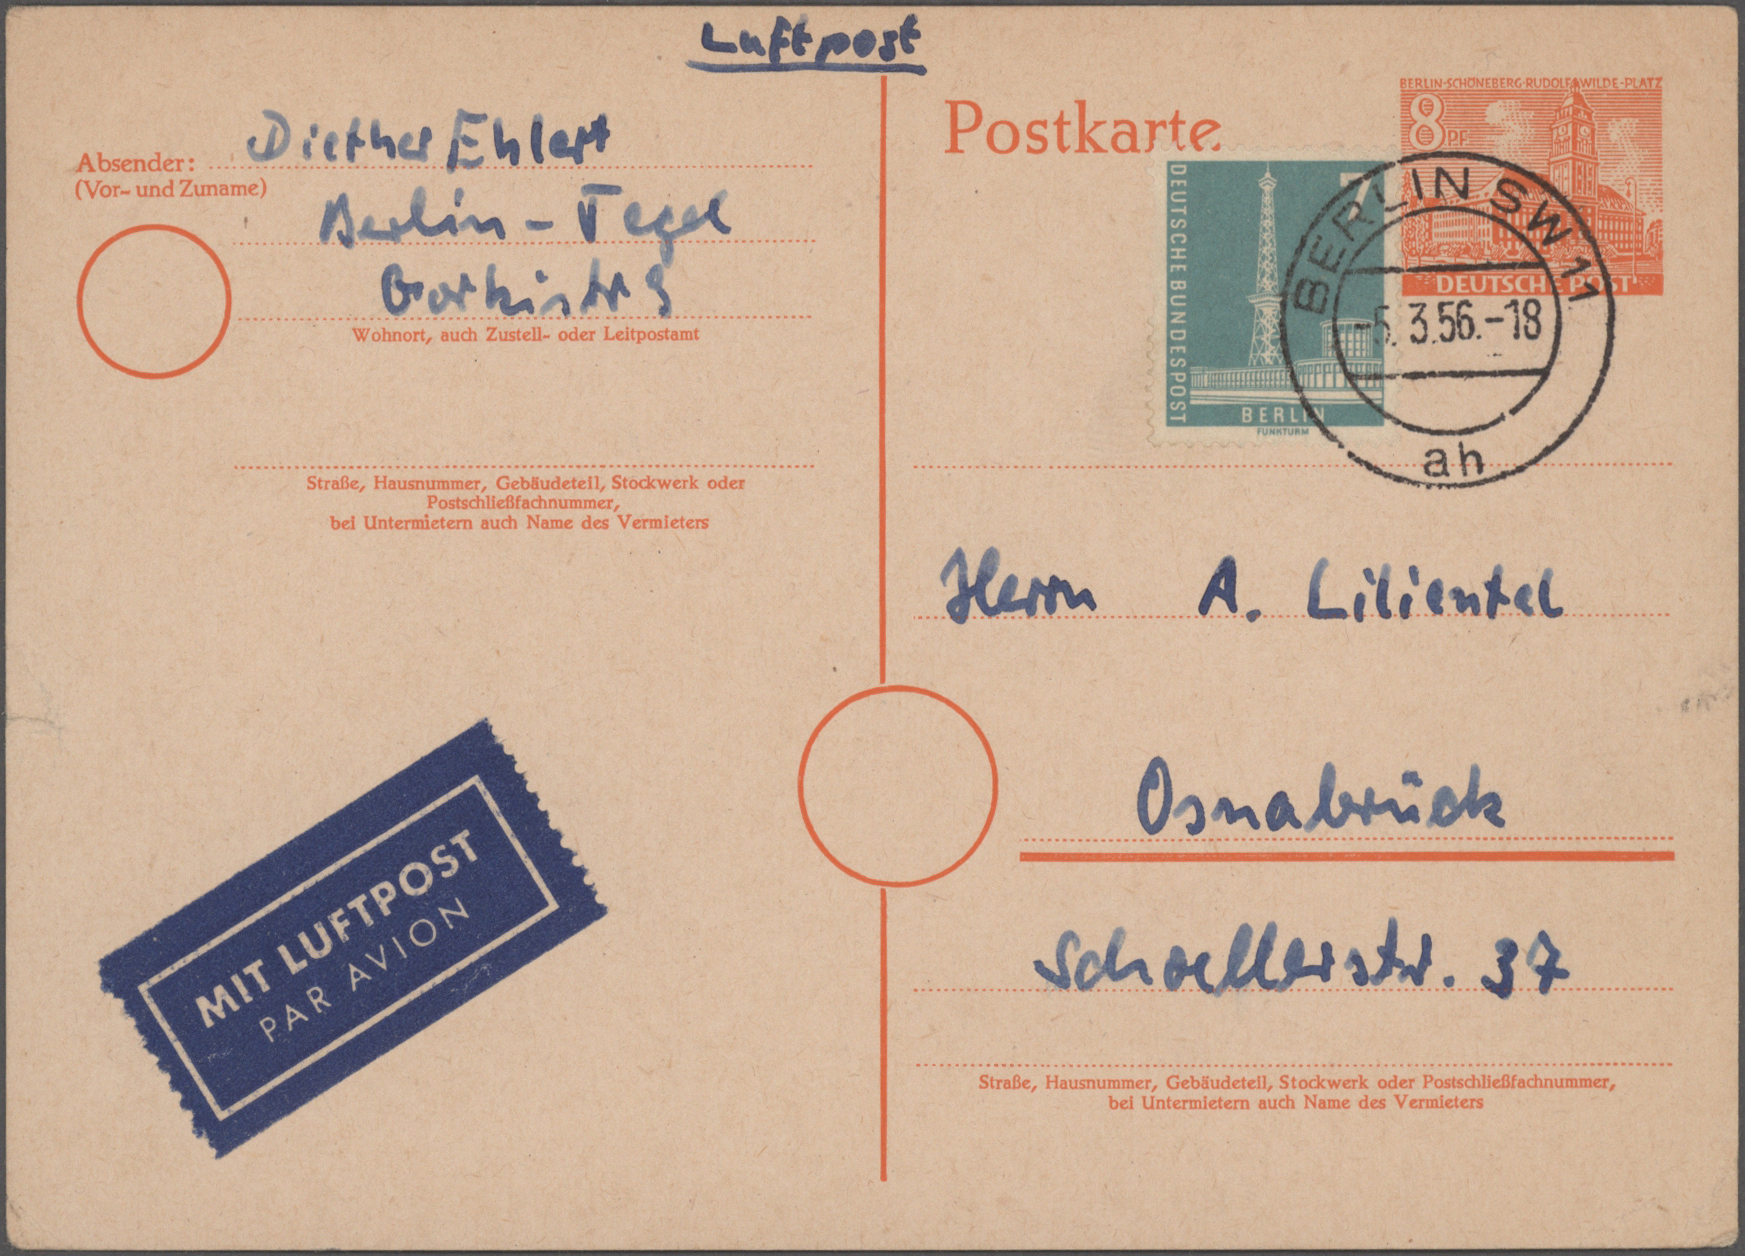 Luftpost
Absender: Diether Ehlert
(Vor- und Zuname)
Berlin - Tegel
Gorkistr 9
Wohnort, auch Zustell- oder Leitpostamt
Straße, Hausnummer, Gebäudeteil, Stockwerk oder
Postschließfachnummer,
bei Untermietern auch Name des Vermieters
MIT LUFTPOST
PAR AVION
Postkarte
BERLIN-SCHÖNEBERG·RUDOLF WILDE-PLATZ
8 PF
DEUTSCHE POST
7
DEUTSCHE BUNDESPOST
BERLIN
FUNKTURM
BERLIN SW 11
-5. 3.56.-18
ah
Herrn A. Lilientel
Osnabrück
Schoellerstr. 37
Straße, Hausnummer, Gebäudeteil, Stockwerk oder Postschließfachnummer,
bei Untermietern auch Name des Vermieters